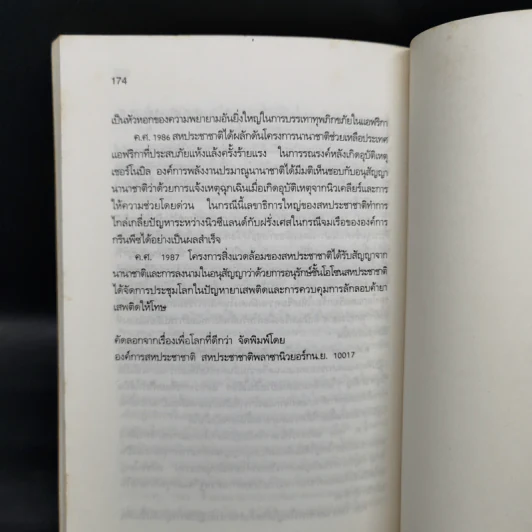 174
เป็นหัวหอกของความพยายามอันยิ่งใหญ่ในการบรรเทาทุพภิกขภัยในแอฟริกา
ค.ศ. 1986 สหประชาชาติได้ผลักดันโครงการนานาชาติช่วยเหลือประเทศ
แอฟริกาที่ประสบภัยแห้งแล้งครั้งร้ายแรง ในการรณรงค์หลังเกิดอุบัติเหตุ
เชอร์โนบิล องค์การพลังงานปรมาณูนานาชาติได้มีมติเห็นชอบกับอนุสัญญา
นานาชาติว่าด้วยการแจ้งเหตุฉุกเฉินเมื่อเกิดอุบัติเหตุจากนิวเคลียร์และการ
ให้ความช่วยโดยด่วน ในกรณีนี้เลขาธิการใหญ่ของสหประชาชาติทำการ
ไกล่เกลี่ยปัญหาระหว่างนิวซีแลนด์กับฝรั่งเศสในกรณีจมเรือขององค์การ
กรีนพีซได้อย่างเป็นผลสำเร็จ
ค.ศ. 1987 โครงการสิ่งแวดล้อมของสหประชาชาติได้รับสัญญาจาก
นานาชาติและการลงนามในอนุสัญญาว่าด้วยการอนุรักษ์ชั้นโอโซนสหประชาชาติ
ได้จัดการประชุมโลกในปัญหายาเสพติดและการควบคุมการลักลอบค้ายา
เสพติดให้โทษ
คัดลอกจากเรื่องเพื่อโลกที่ดีกว่า จัดพิมพ์โดย
องค์การสหประชาชาติ สหประชาชาติพลาซานิวยอร์กน.ย. 10017